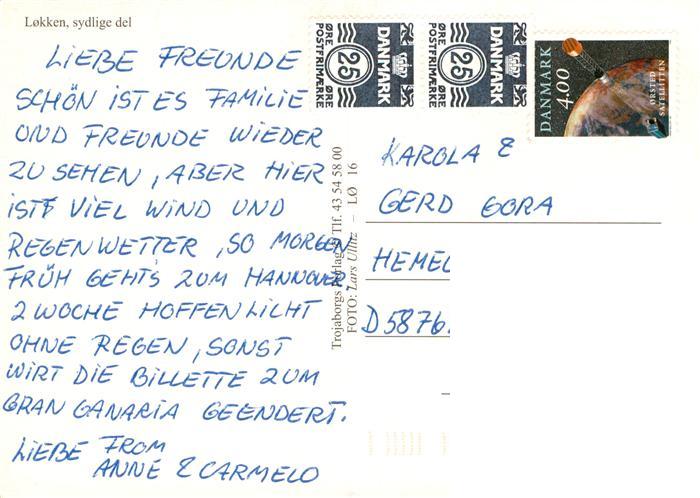 Løkken, sydlige del
LIEBE FREUNDE
SCHÖN IST ES FAMILIE
UND FREUNDE WIEDER
ZU SEHEN, ABER HIER
IST VIEL WIND UND
REGENWETTER, SO MORGEN
FRÜH GEHT'S ZUM HANNOVER,
2 WOCHE HOFFENLICHT
OHNE REGEN, SONST
WIRT DIE BILLETTE ZUM
GRAN CANARIA GEENDERT.
LIEBE FROM
ANNE & CARMELO
Trojaborgs Tlf. 43 54 58 00
FOTO: Lars Ullitz – LØ 16
ØRE
POSTFRIMÆRKE
25
DANMARK
ØRE
POSTFRIMÆRKE
25
DANMARK
DANMARK
4.00
ØRSTED
SATELLITTEN
KAROLA &
GERD GORA
HEMEL
D5876